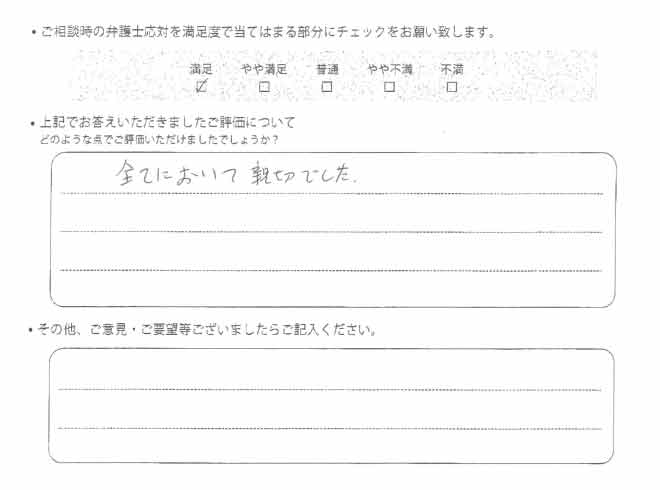 ・ご相談時の弁護士応対を満足度で当てはまる部分にチェックをお願い致します。
満足 やや満足 普通 やや不満 不満
☑ □ □ □ □
・上記でお答えいただきましたご評価について
どのような点でご評価いただけましたでしょうか？
全てにおいて親切でした.
・その他、ご意見・ご要望等ございましたらご記入ください。